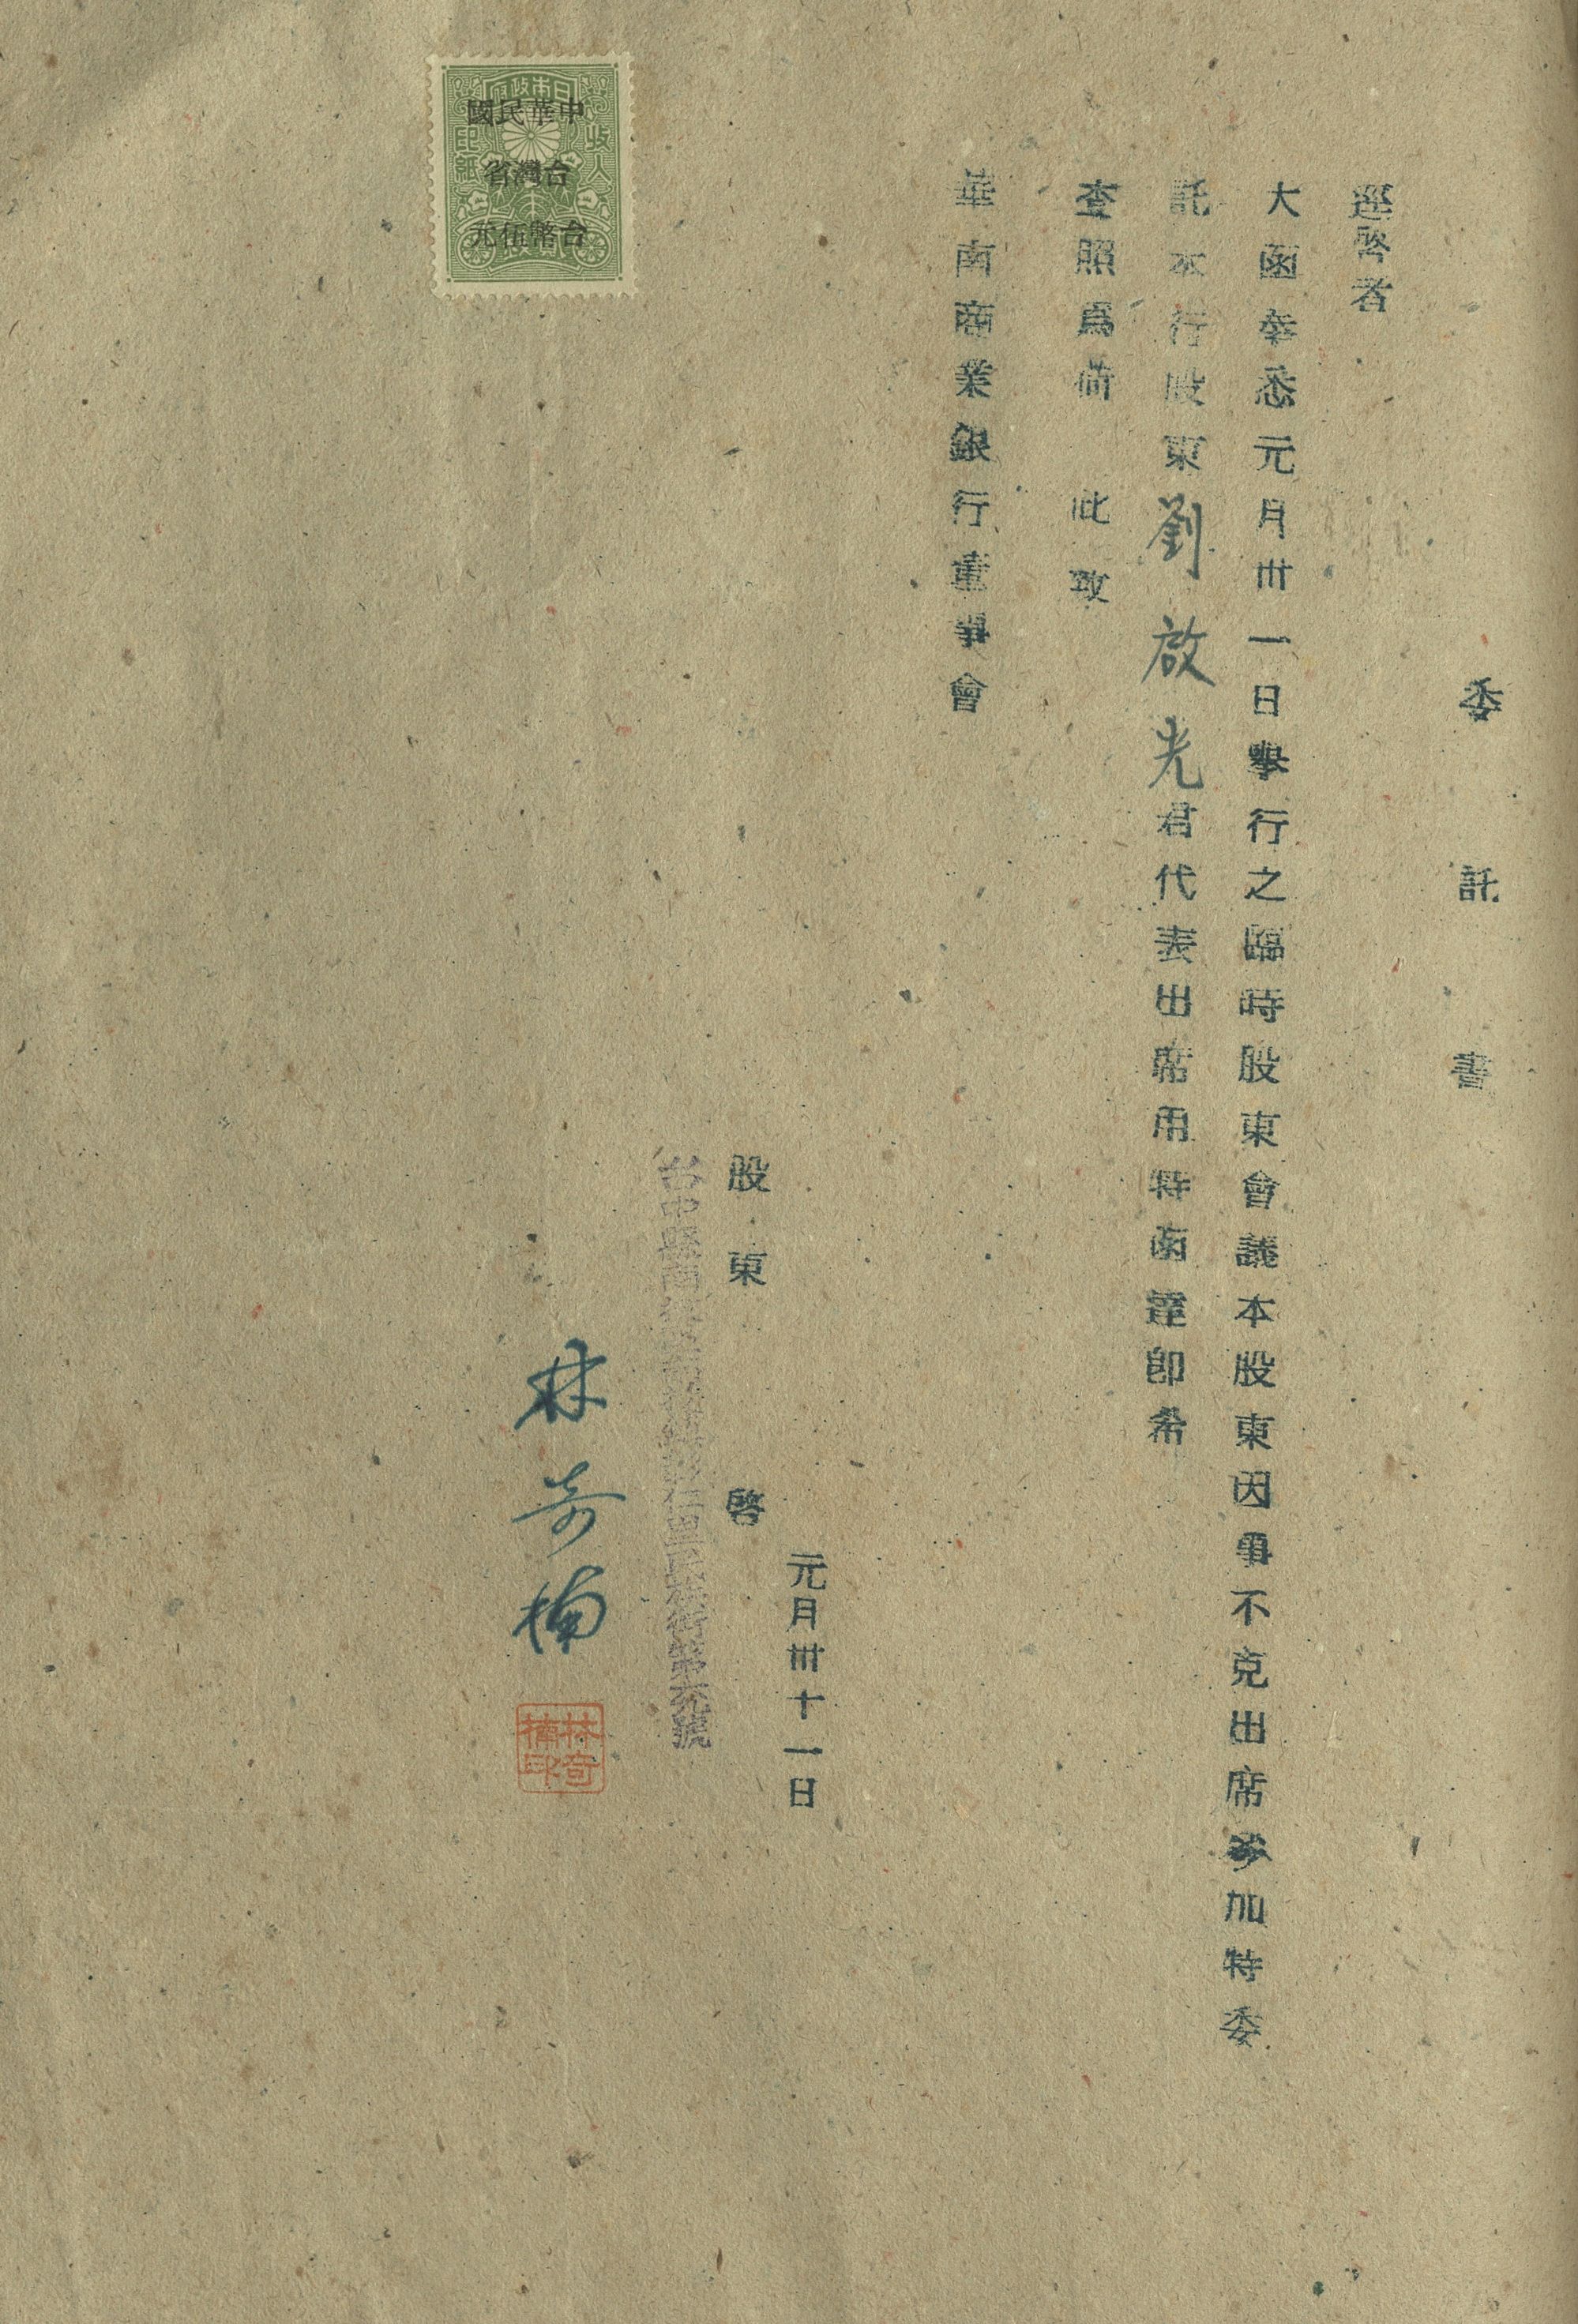 委託書
逕啓者
大函奉悉元月卅一日擧行之臨時股東會議本股東因事不克出席參加特委
託本行股東劉啟光君代表出席用特函達卽希
查照爲荷 此致
華南商業銀行董事會
元月卅十一日
股東 啓
台中縣南 仁里民族街第 號
林奇楠
林奇楠印
日本政府
收入印紙
中華民國
台灣省
台幣伍元